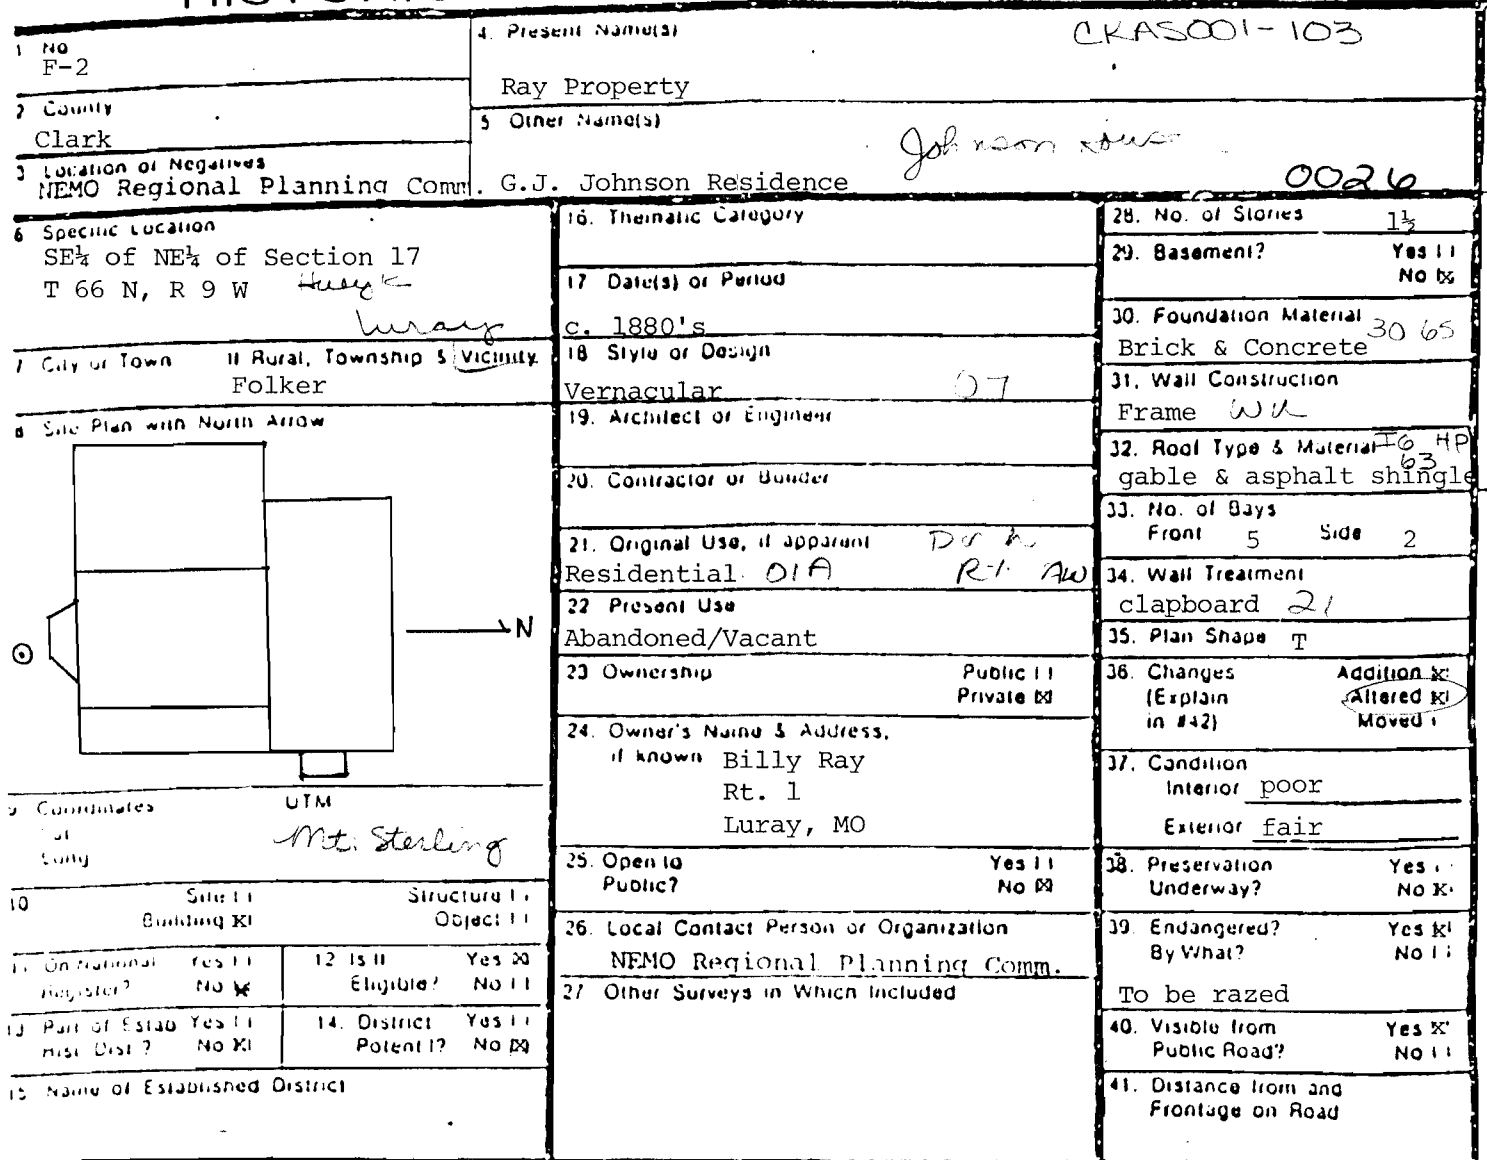 1 No
F-2
4. Present Name(s)
CKAS001-103
Ray Property
2 County
Clark
5 Other Name(s)
Johnson House
3 Location of Negatives
NEMO Regional Planning Comm.
G.J. Johnson Residence
0026
6 Specific Location
SE¼ of NE¼ of Section 17
T 66 N, R 9 W
Luray
7 City or Town If Rural, Township & Vicinity
Folker
8 Site Plan with North Arrow
N
9 Coordinates UTM
Lat
Long
Mt. Sterling
10 Site [ ] Structure [ ]
Building [X] Object [ ]
11 On National Register? Yes [ ] No [X]
12 Is It Eligible? Yes [X] No [ ]
13 Part of Estab Hist Dist? Yes [ ] No [X]
14. District Potent'l? Yes [ ] No [X]
15 Name of Established District
16. Thematic Category
17 Date(s) or Period
c. 1880's
18 Style or Design
Vernacular 07
19. Architect or Engineer
20. Contractor or Builder
21. Original Use, if apparent
Residential 01A
22 Present Use
Abandoned/Vacant
23 Ownership Public [ ]
Private [X]
24. Owner's Name & Address,
if known Billy Ray
Rt. 1
Luray, MO
25. Open to Public? Yes [ ]
No [X]
26. Local Contact Person or Organization
NEMO Regional Planning Comm.
27 Other Surveys in Which Included
28. No. of Stories 1½
29. Basement? Yes [ ]
No [X]
30. Foundation Material 30 65
Brick & Concrete
31. Wall Construction
Frame
32. Roof Type & Material HP
63
gable & asphalt shingle
33. No. of Bays
Front 5 Side 2
34. Wall Treatment
clapboard 21
35. Plan Shape T
36. Changes Addition [X]
(Explain Altered [X]
in #42) Moved [ ]
37. Condition
Interior poor
Exterior fair
38. Preservation Yes [ ]
Underway? No [X]
39. Endangered? Yes [X]
By What? No [ ]
To be razed
40. Visible from Yes [X]
Public Road? No [ ]
41. Distance from and
Frontage on Road